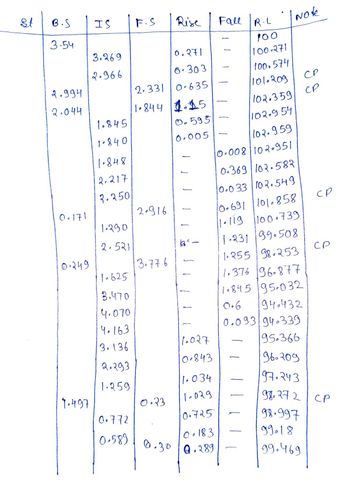 St B.S I.S F.S Rise Fall R.L Note
3.54 — — 100
3.269 0.271 — 100.271
2.966 0.303 — 100.574
2.994 2.331 0.635 — 101.209 CP
2.044 1.844 1.15 — 102.359 CP
1.845 0.595 — 102.954
1.840 0.005 — 102.959
1.848 — 0.008 102.951
2.217 — 0.369 102.582
2.250 — 0.033 102.549
0.171 2.916 — 0.691 101.858 CP
1.290 — 1.119 100.739
2.521 — 1.231 99.508
0.249 3.776 — 1.255 98.253 CP
1.625 — 1.376 96.877
3.470 — 1.845 95.032
4.070 — 0.6 94.432
4.163 — 0.093 94.339
3.136 1.027 — 95.366
2.293 0.843 — 96.209
1.259 1.034 — 97.243
1.497 0.23 1.029 — 98.272 CP
0.772 0.725 — 98.997
0.589 0.183 — 99.18
0.30 0.289 — 99.469